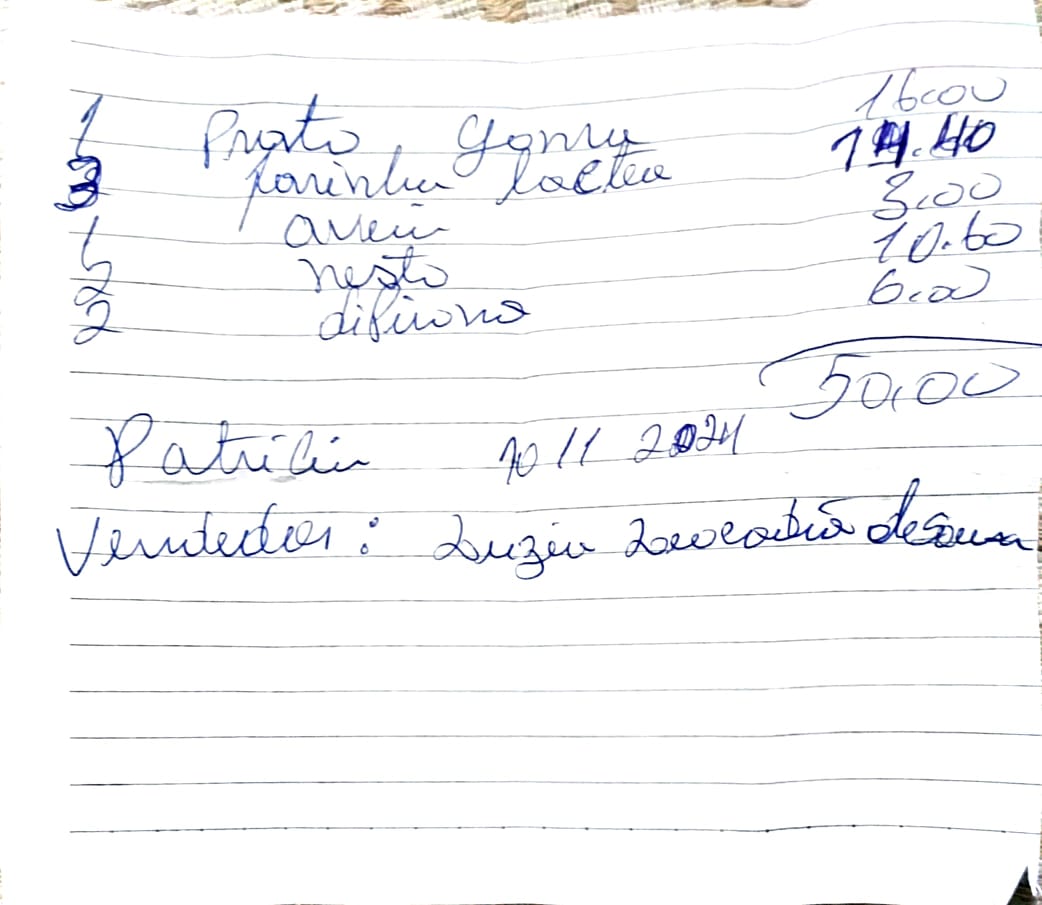 1 Prato, Gomu 16.00
3 farinha lactea 14.40
1 aveia 3.00
2 nesto 10.60
2 dipirona 6.00
50,00
Patrícia 10 11 2024
Vendedor: Luzia Leocadia de Sousa